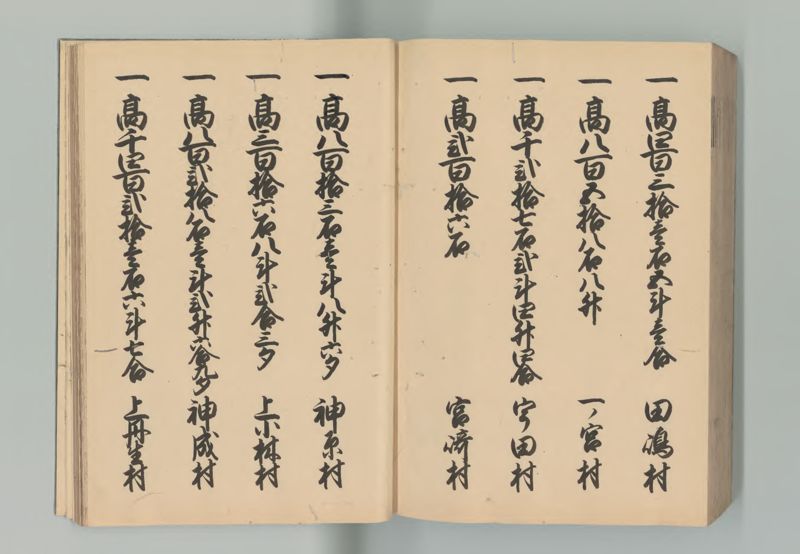 一高四百三拾壱石五斗壱合 田嶋村
一高八百五拾八石八升 一ノ宮村
一高千弐拾七石弐斗四升四合 宇田村
一高弐百拾六石 宮崎村
一高八百拾三石壱斗八升六夕 神原村
一高三百拾六石八斗弐合三夕 上小林村
一高八百弐拾八石壱斗弐升六合九夕 神成村
一高千四百弐拾壱石六斗七合 上丹生村